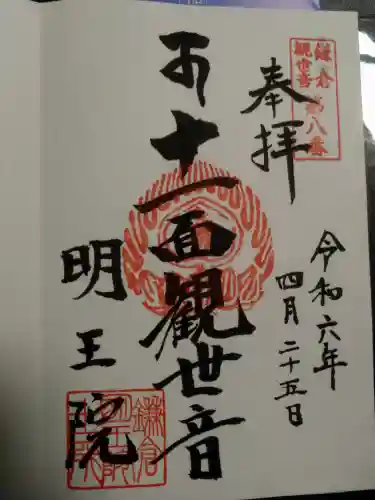 鎌倉
観世音
第八番
奉拝
令和六年
四月二十五日
十一面觀世音
明王院
鎌倉